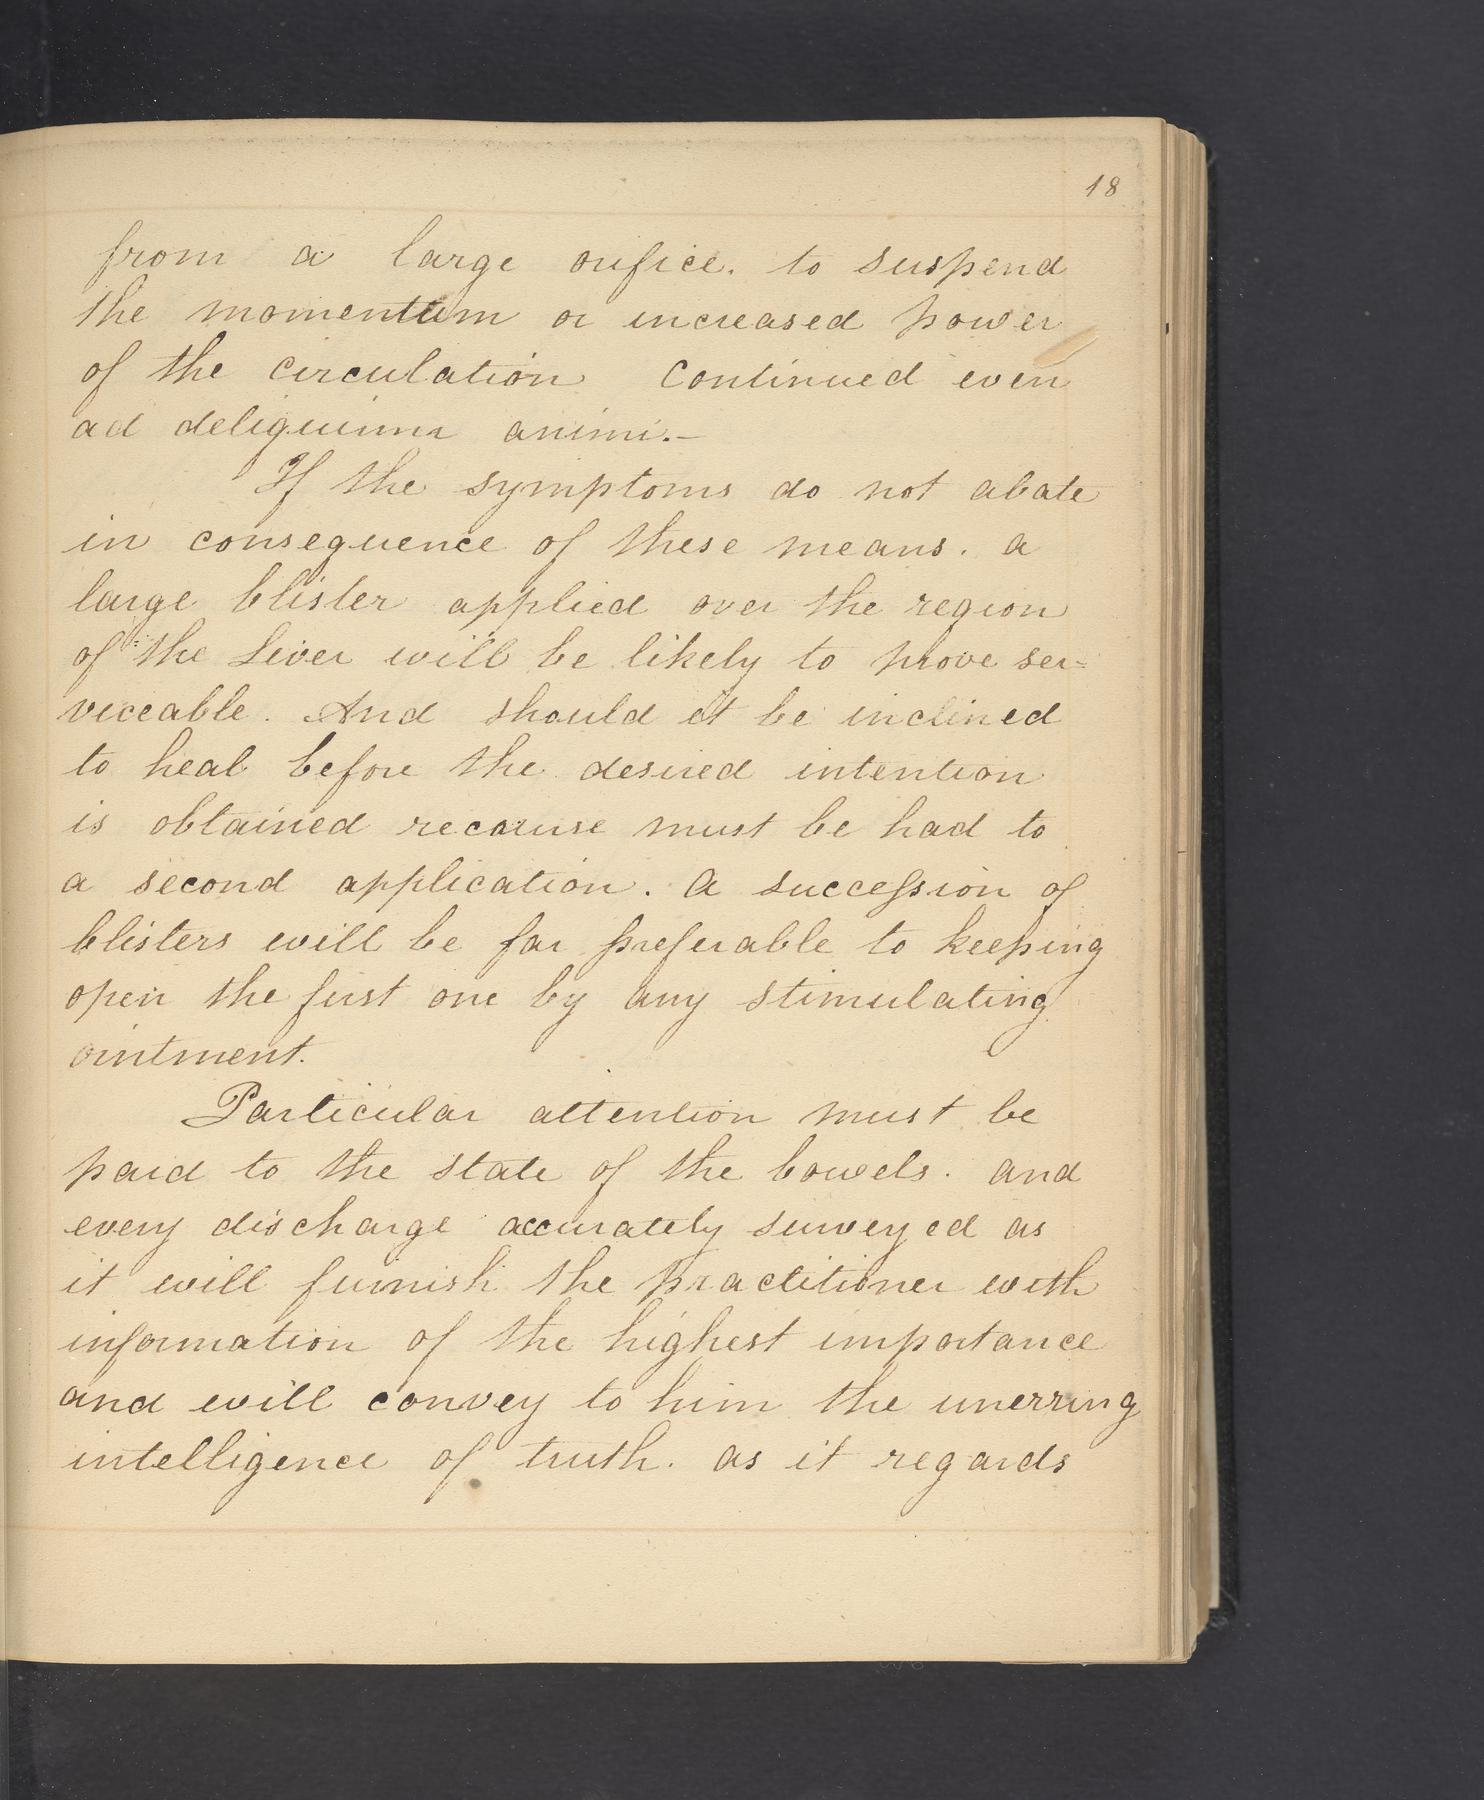 18
from a large orifice. to suspend
the momentum or increased power
of the circulation Continued even
ad deliquium animi.—
If the symptoms do not abate
in consequence of these means. a
large blister applied over the region
of the Liver will be likely to prove ser=
viceable. And should it be inclined
to heal before the desired intention
is obtained recourse must be had to
a second application. A succession of
blisters will be far preferable to keeping
open the first one by any stimulating
ointment.
Particular attention must be
paid to the state of the bowels. and
every discharge accurately surveyed as
it will furnish the practitioner with
information of the highest importance
and will convey to him the unerring
intelligence of truth. as it regards